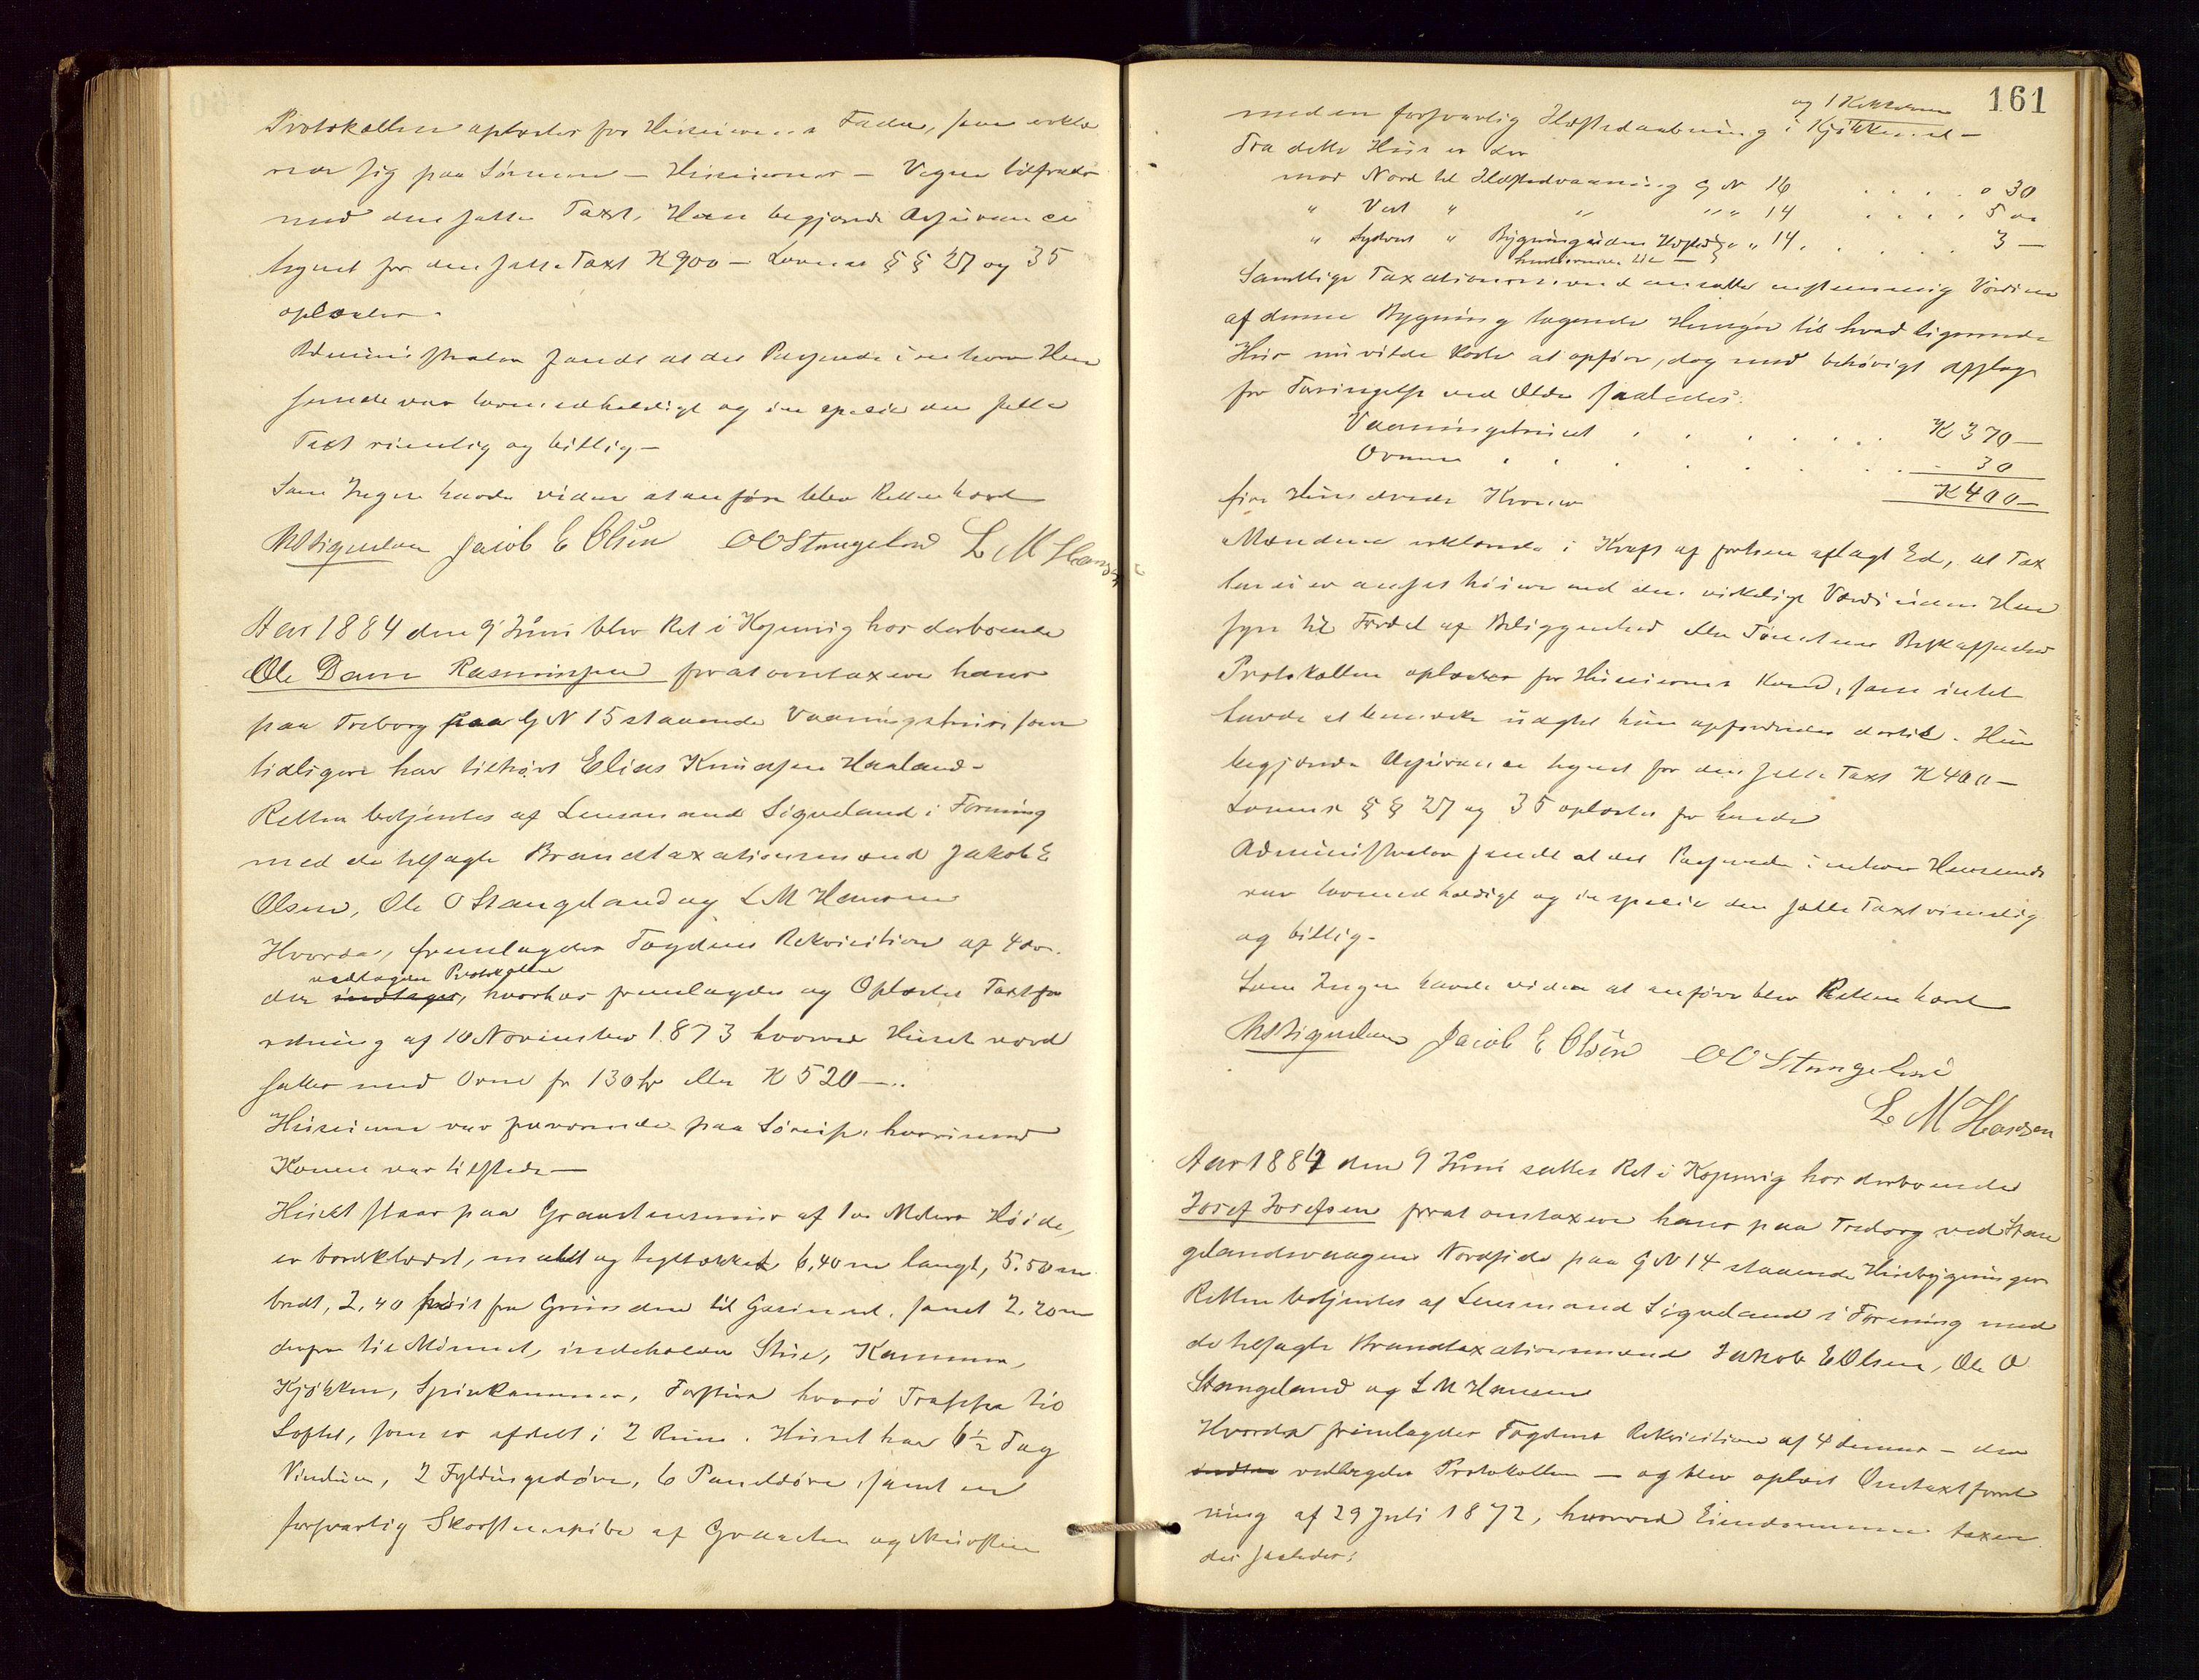 Protokollen oplæstes for Huseierens Fader, som erklæ
rede sig paa Sønnens – Huseierens – Vegne tilfreds
med den satte Taxt. Han begjærede Assurance
tegnet for den satte Taxt K 900 – Lovens §§ 27 og 35
oplæstes.
Administrator fandt at det Passerede i enhver Hen
seende var lovmedholdigt og in specie den satte
Taxt rimelig og billig –
Som Ingen havde videre at anføre blev Retten hævet
Jacob E Olsen OO Stangeland L M Hansen
Aar 1884 den 9 Juni blev Ret i Kopervig hos derboende
Ole Dam Rasmussen for at omtaxere hans
paa Treborg paa G N 15 staaende Vaaningshus som
tidligere har tilhørt Elias Knudsen Haaland –
Retten betjentes af Lensmand Sigveland i Forening
med de tilsagte Brandtaxationsmænd Jakob E
Olsen, Ole O Stangeland og L M Hansen
Hvorda, fremlagdes Fogdens Rekvisition af 4 ds.
vedlagdes Protokollen
der indtages, hvorhos fremlagdes og Oplæstes Taxtfor
retning af 10 November 1873 hvorved Huset værd
sattes med Ovne for 130 Sp eller K 520 –..
Huseieren var fraværende paa Søreise hvorimod
Konen var tilstede –
Huset staar paa Graastensmur af 1 Meters Høide,
er bordklædt, malet og tegltækket 6,40 m langt, 5.50 m
bredt, 2,40 høit fra Grunden til Gesimset, samt 2.20 m
derfra til Mønnet, indeholder Stue, Kammer,
Kjøkken, Spisekammer, Forstue hvori Trappe til
Loftet, som er afdelt i 2 Rum. Huset har 6½ Fag
Vinduer, 2 Fyldingsdøre, 6 Paneldøre samt en
forsvarlig Skorstenspibe af Graasten og Mursten
161
og 1 Kakkelovn
med en forsvarlig Ildstedaabning i Kjøkkenet –
Fra dette Hus er der
mod Nord til Ildstedvaaning G N 16 . . . . . 30
" Vest " " " " 14 . . . . 5
" Sydvest " Bygning uden Ildsted " " 14 . . . . . 3 –
Samtlige Taxationsmænd ansatte enstemmig Værdien
af denne Bygning tagende Hensyn til hvad lignende
Hus nu vilde koste at opføre, dog med behørigt Afslag
for Forringelse ved Ælde saaledes:
Vaaningshuset . . . . . . . K 370 –
Ovnen . . . . . . . 30
fire Hundrede Kroner K 400 –
Mændene erklærede i Kraft af forhen aflagt Ed, at Tax
ten ei er ansat høiere end den virkelige Værdi uden Hen
syn til Fordel af Beliggenhed eller Tomtens Beskaffenhed
Protokollen oplæstes for Huseierens Kone, som intet
havde at bemærke uagtet hun opfordredes dertil. Hun
begjærede Assurance tegnet for den satte Taxt K 400 –
Lovens §§ 27 og 35 oplæstes for hende
Administrator fandt at det Passerede i enhver Henseende
var lovmedholdigt og in specie den satte Taxt rimelig
og billig –
Som Ingen havde videre at anføre blev Retten hævet
Jacob E Olsen OO Stangeland
L M Hansen
Aar 1884 den 9 Juni sattes Ret i Kopervig hos derboende
Josef Josefsen for at omtaxere hans paa Treborg ved Stan
gelandsvaagens Nordside paa G N 14 staaende Husbygninger
Retten betjentes af Lensmand Sigveland i Forening med
de tilsagte Brandtaxationsmænd Jakob E Olsen, Ole O
Stangeland og L M Hansen
Hvorda fremlagdes Fogdens Rekvisition af 4 dennes – der
indtas vedlagdes Protokollen – og blev oplæst Omtaxtforret
ning af 29 Juli 1872, hvorved Eiendommene taxere
des saaledes: